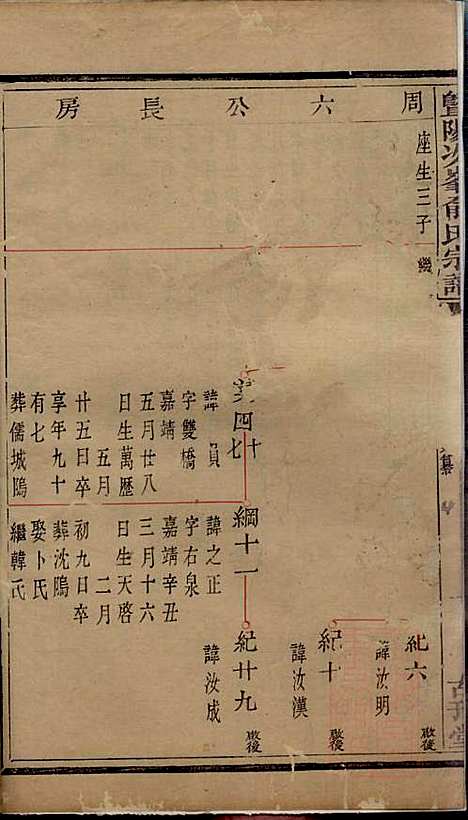 暨陽次峯俞氏宗譜
周六公長房
座生三子 繼
紀六 啟後
諱汝明
紀十 啟後
諱汝漢
四十七
諱員
字雙橋
嘉靖
五月廿八
日生萬歷
五月
廿五日卒
享年九十
有七
葬儒城鴫
綱十一
諱之正
字右泉
嘉靖辛丑
三月十六
日生天啓
二月
初九日卒
葬沈鴫
娶卜氏
繼韓氏
紀廿九 啟後
諱汝成